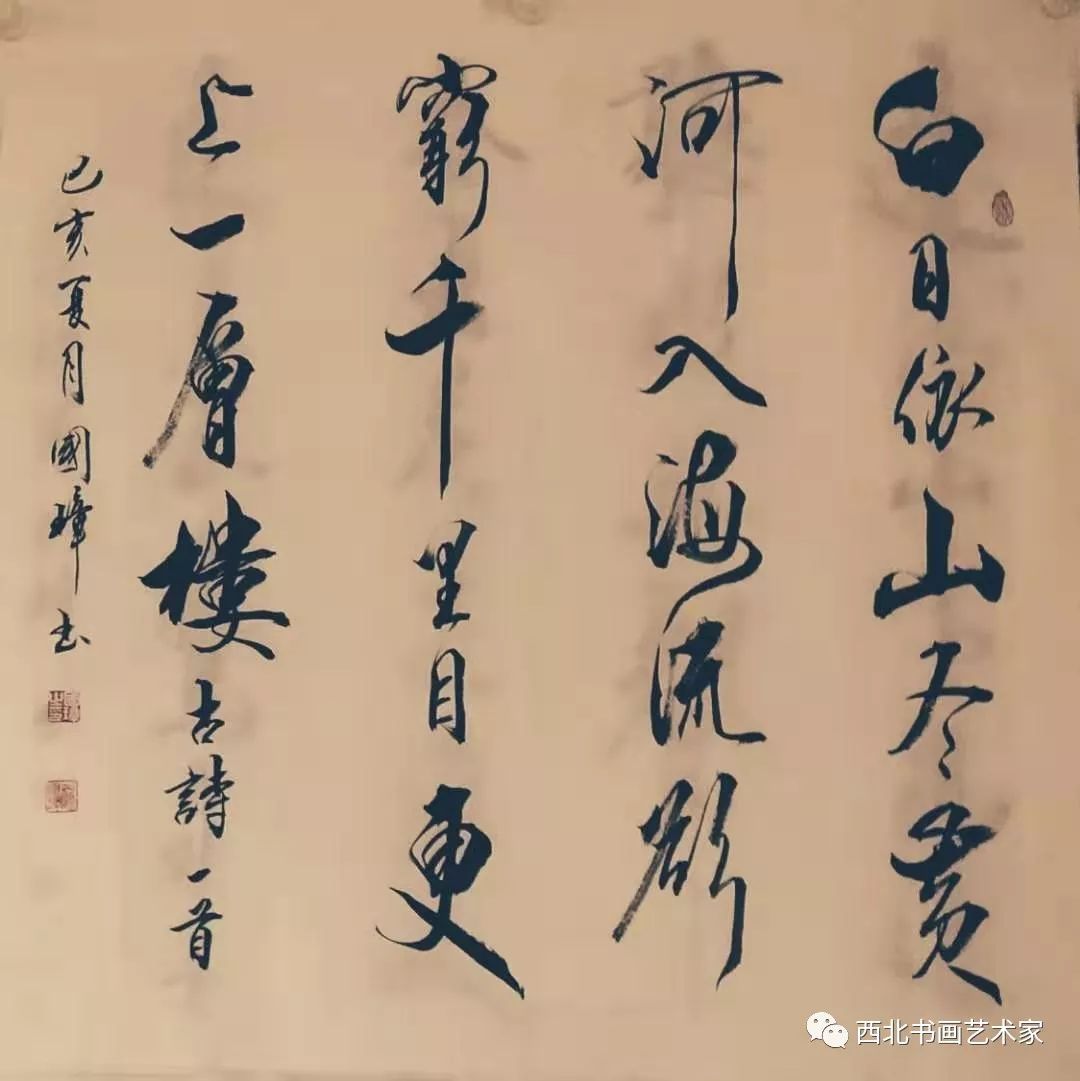 白日依山尽黄
河入海流欲
窮千里目更
上一層樓古詩一首
己亥夏月國璋书
西北书画艺术家